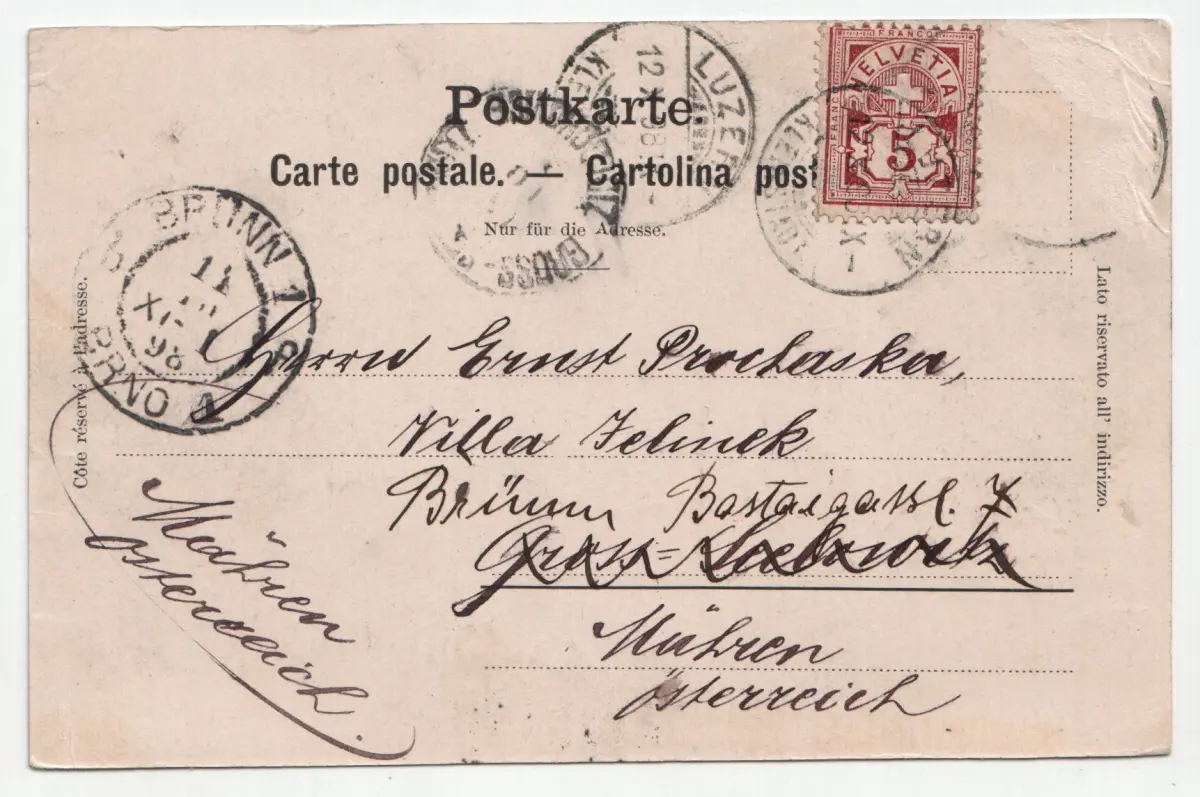 Postkarte.
Carte postale. — Cartolina post
Nur für die Adresse.
Côté réservé à l'adresse.
Lato riservato all' indirizzo.
FRANCO
HELVETIA
5
LUZERN
12 X 98
BRÜNN 1
BRNO
11
98
GROSS
Herrn Ernst Prochaska,
Villa Jelinek
Brünn
Gross-Seelowitz
Mähren
österreich
Mähren
österreich.